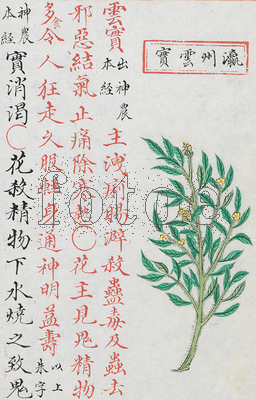 瀛州雲實
雲實出神農本經主洩痢腸澼殺蠱毒及蟲去
邪惡結氣止痛除寒熱〇花主見鬼精物
多食令人狂走久服輕身通神明益壽以上朱字
神農本經實消渴〇花殺精物下水燒之致鬼
fotoe